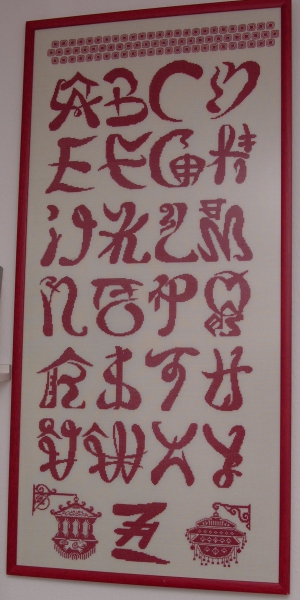 A B C D
E F G H
I J K L M
N O P Q
R S T U
V W X Y
Z